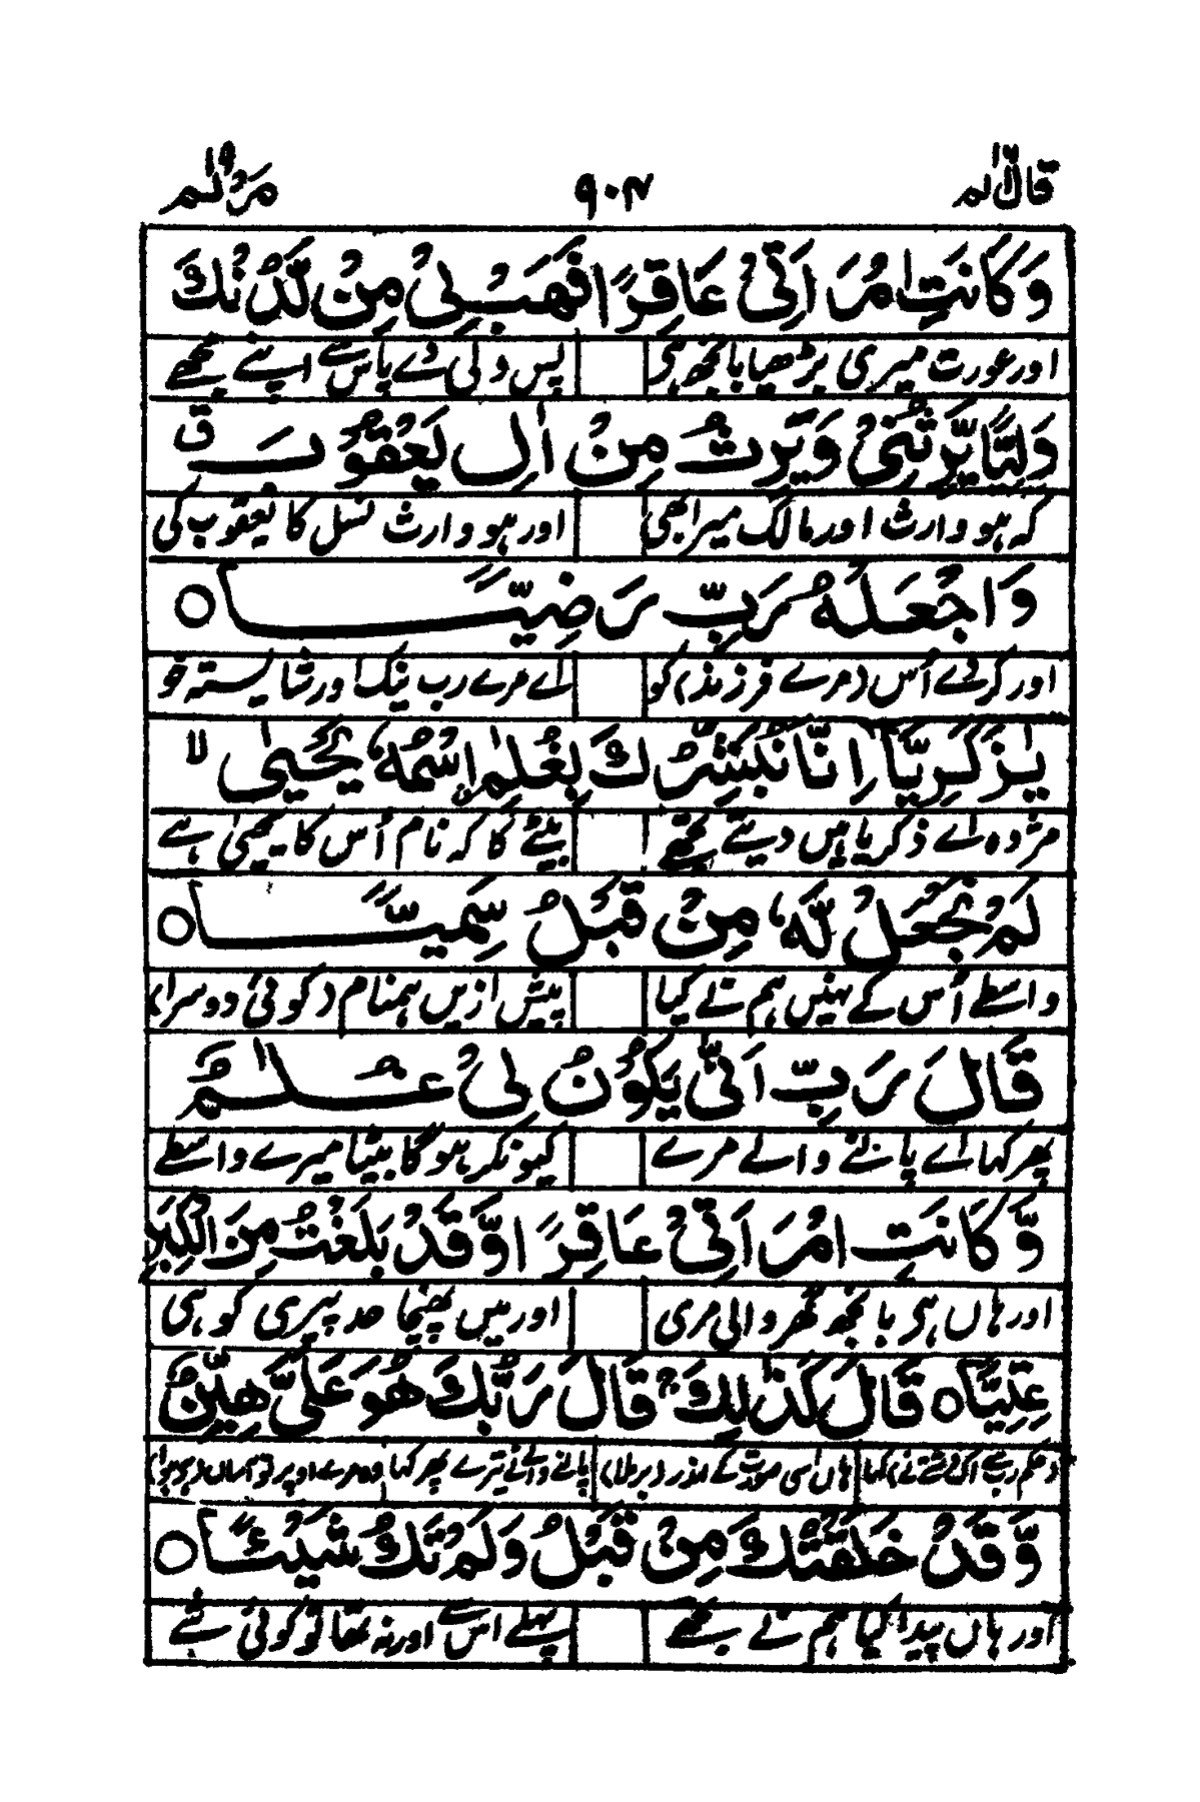 قال الم ۱۶ ۹۰۴ مریم ۱۹
وَكَانَتِ امْرَاَتِیْ عَاقِرًا فَهَبْ لِیْ مِنْ لَّدُنْكَ
اور عورت میری بڑھیا بانجھ ہی پس ولی دے پاس سے اپنے مجھے
وَلِیًّا یَّرِثُنِیْ وَیَرِثُ مِنْ اٰلِ یَعْقُوْبَ ق
کہ ہو وارث اور مالک میرا بھی اور ہو وارث نسل کا یعقوب کی
وَاجْعَلْهُ رَبِّ رَضِیًّا ○
اور کر دے اُس (مرے فرزند) کو اے مرے رب نیک اور شایستہ خو
یٰزَكَرِیَّاۤ اِنَّا نُبَشِّرُكَ بِغُلٰمِ اِسْمُهٗ یَحْیٰی لا
مژدہ اے ذکریا ہیں دیتے تجھے بیٹے کا کہ نام اُس کا یحیٰی ہے
لَمْ نَجْعَلْ لَّهٗ مِنْ قَبْلُ سَمِیًّا ○
واسطے اُس کے نہیں ہم نے کیا پیش ازیں ہمنام (کوئی دوسرا)
قَالَ رَبِّ اَنّٰی یَكُوْنُ لِیْ غُلٰمٌ
پھر کہا اے پالنے والے مرے کیونکر ہو گا بیٹا میرے واسطے
وَّكَانَتِ امْرَاَتِیْ عَاقِرًا وَّقَدْ بَلَغْتُ مِنَ الْكِبَرِ
اور ہاں ہی بانجھ گھر والی مری اور میں پہنچا حد پیری کو ہی
عِتِیًّا ○ قَالَ كَذٰلِكَ ج قَالَ رَبُّكَ هُوَ عَلَیَّ هَیِّنٌ
کہا ہاں اسی صورت کے اندر (برملا) پالنے والے تیرے پھر کہا وہ مرے اوپر تو آساں
وَّقَدْ خَلَقْتُكَ مِنْ قَبْلُ وَلَمْ تَكُ شَیْئًا ○
اور ہاں پیدا کیا ہم نے تجھے پہلے اس سے اور نہ تھا تو کوئی شے